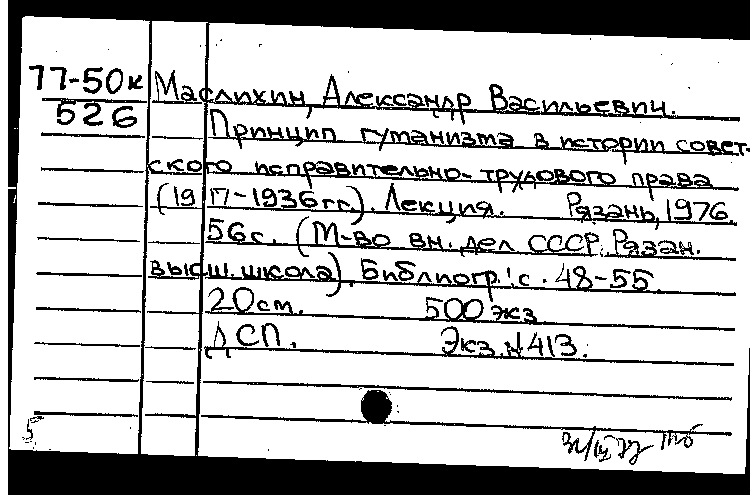 77-50к Маслихин, Александр Васильевич.
526 Принцип гуманизма в истории совет-
ского исправительно-трудового права
(1917-1936гг.). Лекция. Рязань, 1976.
56с. (М-во вн. дел СССР. Рязан.
высш. школа). Библиогр.: с. 48-55.
20см. 500 экз
ДСП. Экз. №413.
5